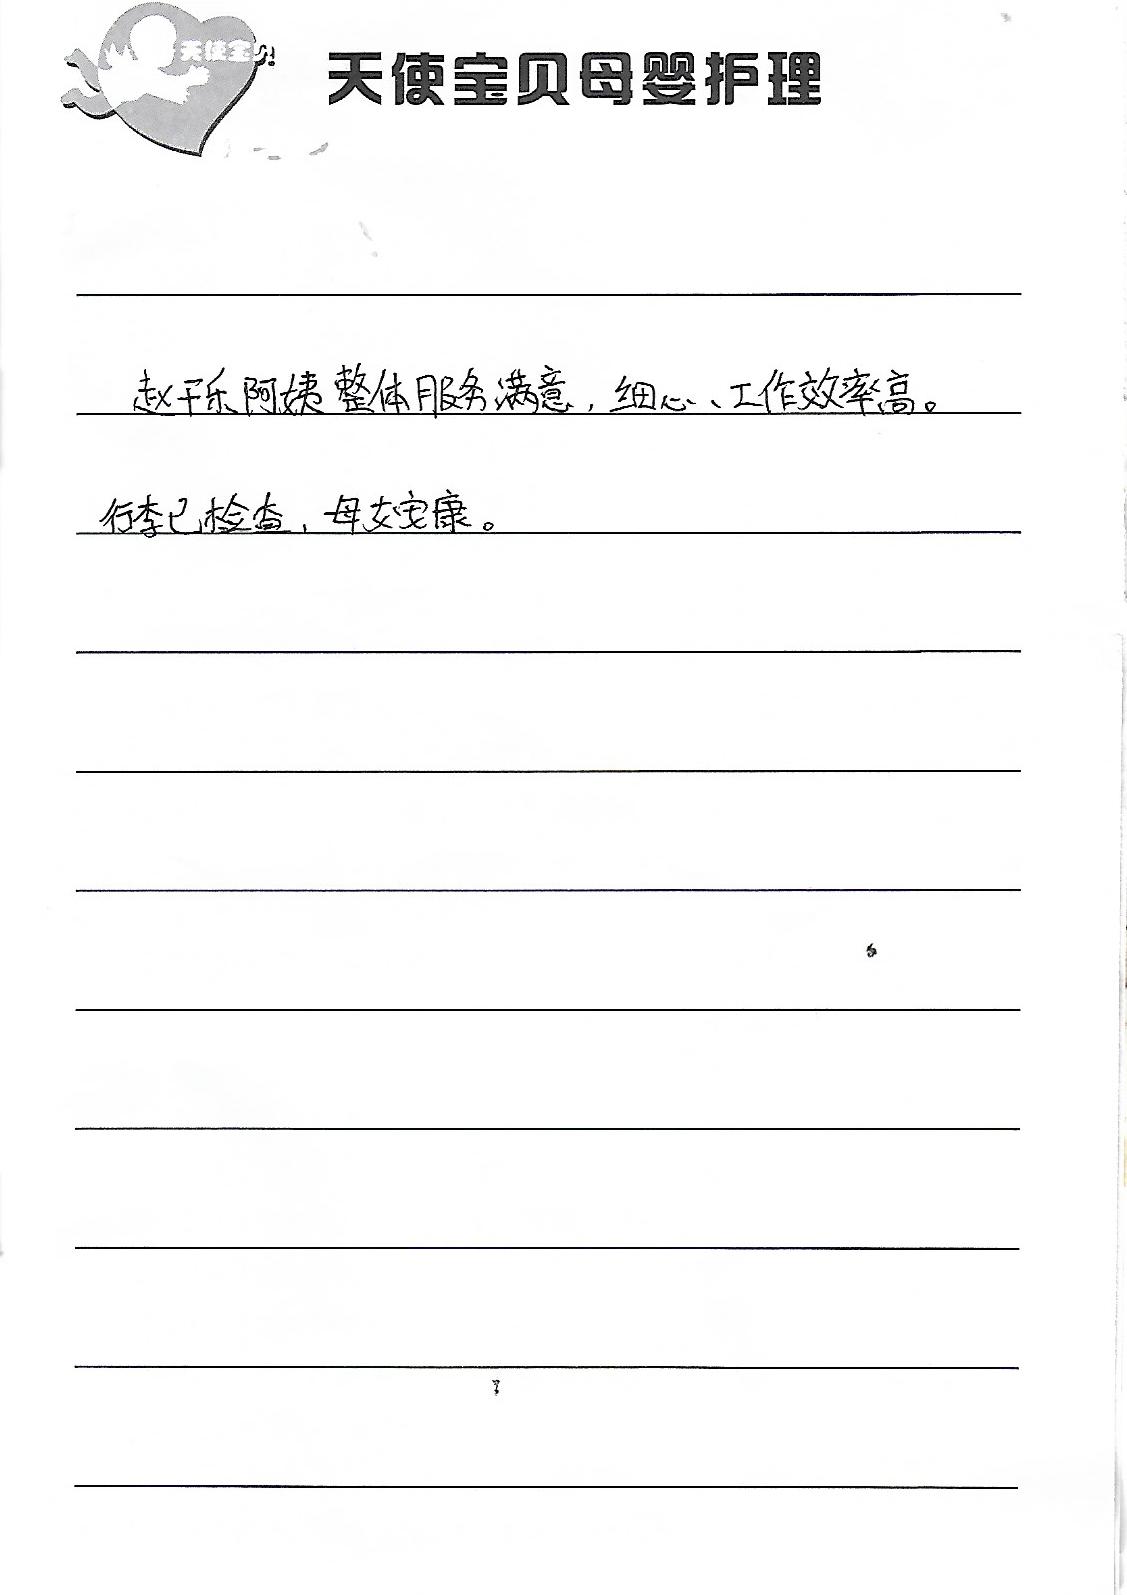 天使宝贝
天使宝贝母婴护理
赵干乐阿姨整体服务满意，细心、工作效率高。
行李已检查，母女安康。